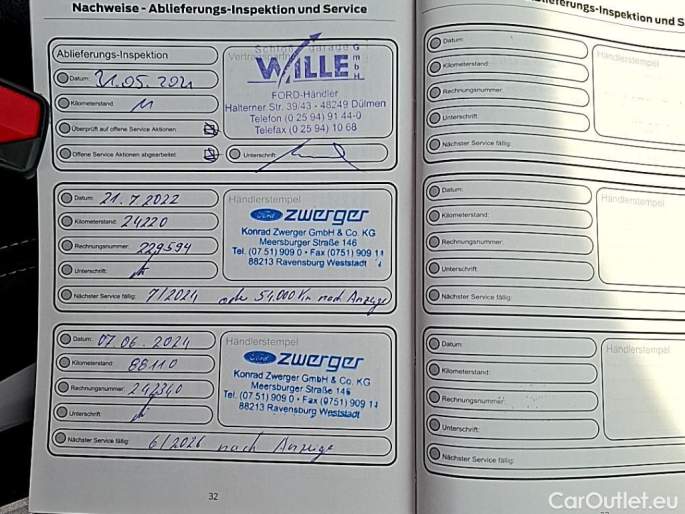 Nachweise - Ablieferungs-Inspektion und Service
Ablieferungs-Inspektion
Datum: 21.05.2021
Kilometerstand: 11
Überprüft auf offene Service Aktionen:
Offene Service Aktionen abgearbeitet:
Unterschrift:
Schloßgarage GmbH
WILLE
FORD-Händler
Halterner Str. 39/43 - 48249 Dülmen
Telefon (0 25 94) 91 44-0
Telefax (0 25 94) 10 68
Datum: 21.7.2022
Kilometerstand: 24220
Rechnungsnummer: 229594
Unterschrift:
Nächster Service fällig: 7/2024 oder 54,000 Km nach Anzeige
Händlerstempel
Ford zwerger
Konrad Zwerger GmbH & Co. KG
Meersburger Straße 146
Tel. (07 51) 909 0 • Fax (0751) 909 11
88213 Ravensburg Weststadt
Datum: 07.06.2024
Kilometerstand: 88110
Rechnungsnummer: 242340
Unterschrift:
Nächster Service fällig: 6/2026 nach Anzeige
Händlerstempel
Ford zwerger
Konrad Zwerger GmbH & Co. KG
Meersburger Straße 146
Tel. (07 51) 909 0 • Fax (0751) 909 11
88213 Ravensburg Weststadt
32
Ablieferungs-Inspektion und S
Datum:
Kilometerstand:
Rechnungsnummer:
Unterschrift:
Nächster Service fällig:
Händlerstempel
Datum:
Kilometerstand:
Rechnungsnummer:
Unterschrift:
Nächster Service fällig:
Händlerstempel
Datum:
Kilometerstand:
Rechnungsnummer:
Unterschrift:
Nächster Service fällig:
Händlerstempel
CarOutlet.eu